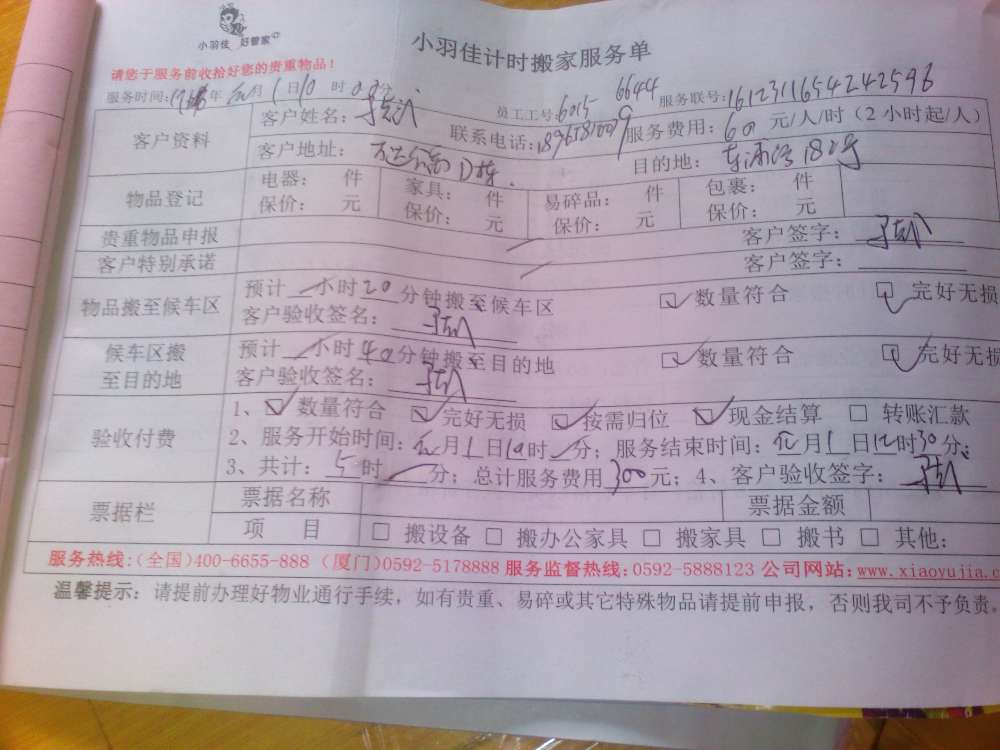 小羽佳 好管家
小羽佳计时搬家服务单
请您于服务前收拾好您的贵重物品！
服务时间： 年 元月1日10时00分 员工工号：6015 6644 服务联号：1612311654242596
客户资料 客户姓名： 联系电话： 服务费用：60元/人/时（2小时起/人）
客户地址： D栋 目的地： 182号
物品登记 电器： 件 家具： 件 易碎品： 件 包裹： 件
保价： 元 保价： 元 保价： 元 保价： 元
贵重物品申报 客户签字：
客户特别承诺 客户签字：
物品搬至候车区 预计 小时20分钟搬至候车区 数量符合 完好无损
客户验收签名：
候车区搬至目的地 预计 小时40分钟搬至目的地 数量符合 完好无损
客户验收签名：
验收付费 1、数量符合 完好无损 按需归位 现金结算 转账汇款
2、服务开始时间：元月1日10时 分；服务结束时间：元月1日12时30分；
3、共计：5时 分；总计服务费用300元；4、客户验收签字：
票据栏 票据名称 票据金额
项 目 搬设备 搬办公家具 搬家具 搬书 其他：
服务热线：（全国）400-6655-888（厦门）0592-5178888 服务监督热线：0592-5888123 公司网站：www.xiaoyujia.c
温馨提示：请提前办理好物业通行手续，如有贵重、易碎或其它特殊物品请提前申报，否则我司不予负责。